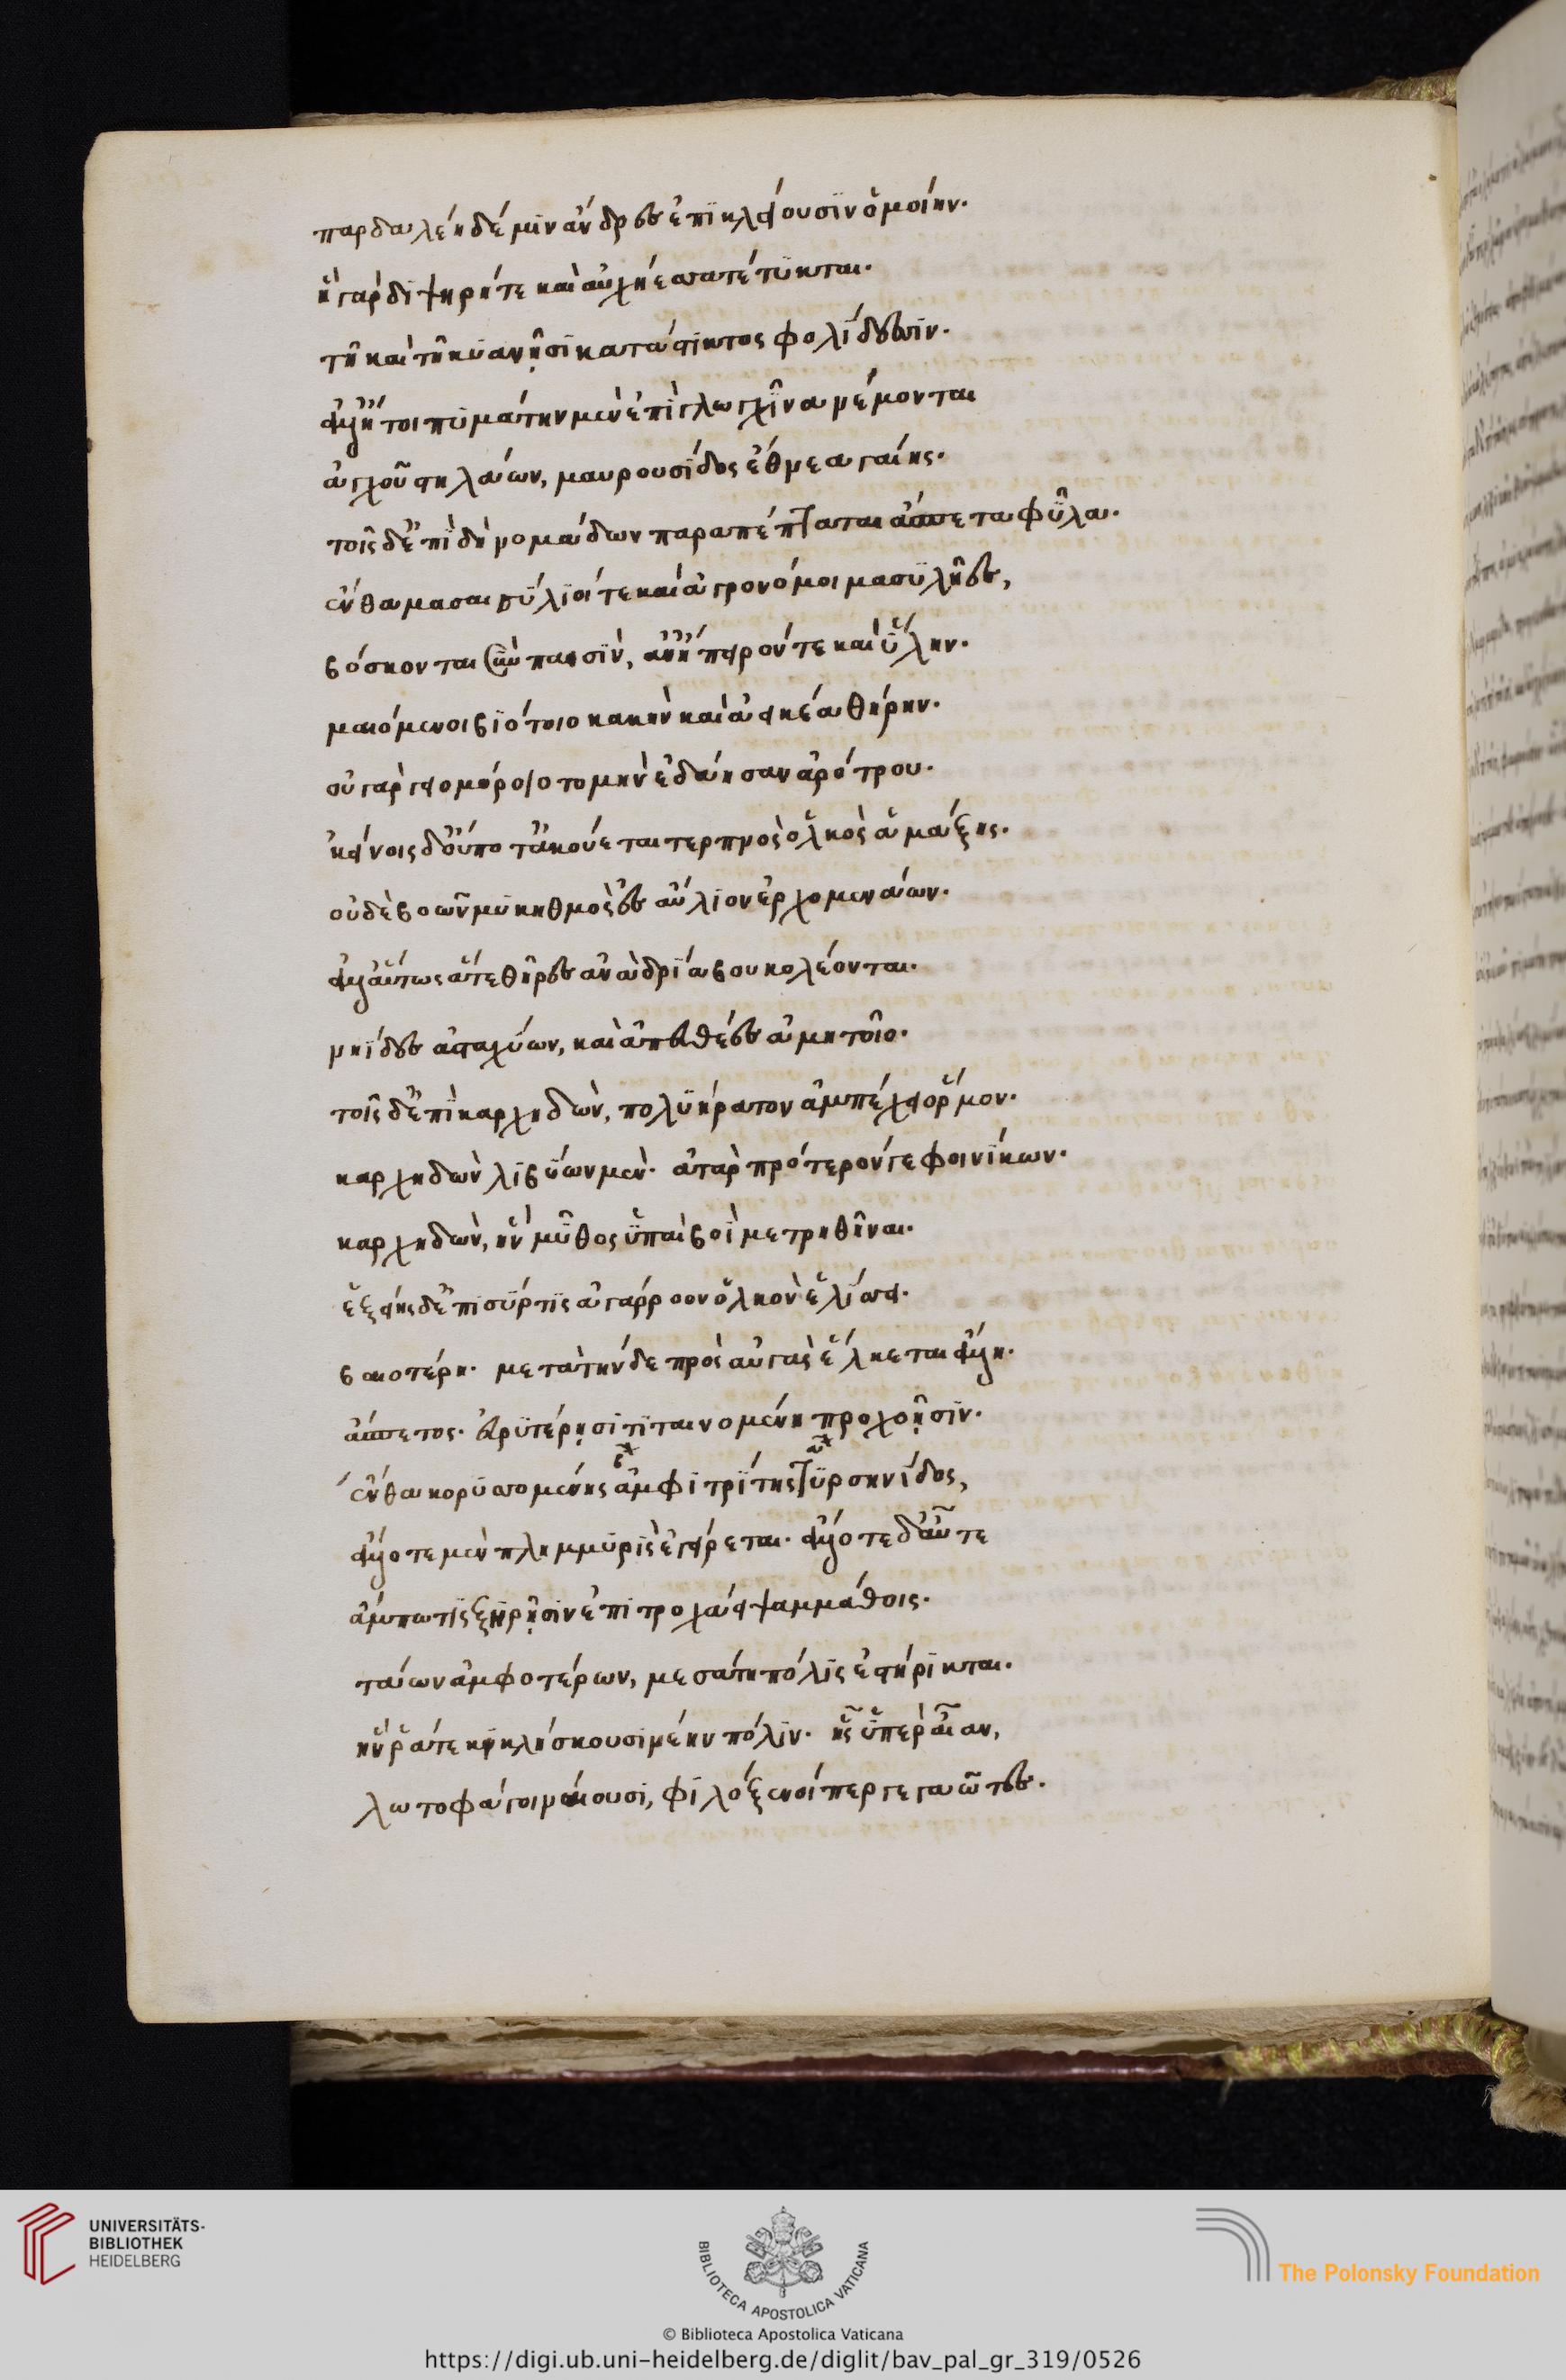 παρδαλέη δέ μιν ἄνδρες ἐπϊκλείουσϊν ὁμοίην·
ἢ γὰρ διψηρή τε καὶ αὐχμήεσσα τέτϋκται·
τῆ καὶ τῆ κϋανῇσϊ κατάστϊκτος φολίδεσσϊν·
ἀλλ' ἤτοι πϋμάτην μὲν ἐπὶ γλωχῖνα νέμονται
ἀγχοῦ στηλάων, μαυρουσΐδος ἔθνεα γαίης·
τοῖς δ' ἐπὶ δὴ νομάδων παραπέπταται ἄσπετα φῦλα·
ἔνθα μασαισΰλϊοί τε καὶ ἀγρονόμοι μασϋλῆες,
βόσκονται σὺν παισϊν, ἀν' ἤπειρόν τε καὶ ὕλην·
μαιόμενοι βϊότοιο κακὴν καὶ ἀεικέα θήρην·
οὐ γὰρ γειομόροιο τομὴν ἐδάησαν ἀρότρου·
κείνοις δ' οὔποτ' ἀκούεται τερπνὸς ὁλκὸς ἁμάξης·
οὐδὲ βοῶν μϋκηθμὸς ἐς αὔλϊον ἐρχομενάων·
ἀλλ' αὔτως ἅτε θῆρες ἀνὰ δρΐα βουκολέονται·
νήϊδες ἀσταχύων, καὶ ἀπευθέες ἀμητοῖο·
τοῖς δ' ἐπὶ καρχηδὼν, πολϋήρατον ἀμπέχει ὅρμον·
καρχηδὼν λϊβΰων μὲν· ἀτὰρ πρότερόν γε φοινΐκων·
καρχηδὼν, ἣν μῦθος ὑπαὶ βοῒ μετρηθῆναι·
ἑξείης δ' ἐπϊ σΰρτϊς ἀγάρροον ὁλκὸν ἑλίσσει·
βαιοτέρη· μετὰ τήνδε πρὸς αὐγὰς ἕλκεται ἄλλη·
ἄσπετος· εὐρϋτέρῃσϊ τϊταινομένη προχοῇσϊν·
ἔνθα κορϋσσομένης ἀμφϊτρΐτης τϋρσηνίδος,
ἄλλοτε μὲν πλημμϋρὶς ἐγείρεται· ἄλλοτε δ' αὖτε
ἄμπωτϊς ξηρῇσϊν ἐπϊτροχάει ψαμμάθοις·
τάων ἀμφοτέρων, μεσάτη πόλϊς ἐστήρϊκται·
ἥν ῥά τε κικλήσκουσϊ νέην πόλϊν· ἧς ὑπὲρ αἶαν,
λωτοφάγοι ναίουσϊ, φϊλόξενοί περ γεγαῶτες·
UNIVERSITÄTS-
BIBLIOTHEK
HEIDELBERG
BIBLIOTECA APOSTOLICA VATICANA
The Polonsky Foundation
© Biblioteca Apostolica Vaticana
https://digi.ub.uni-heidelberg.de/diglit/bav_pal_gr_319/0526